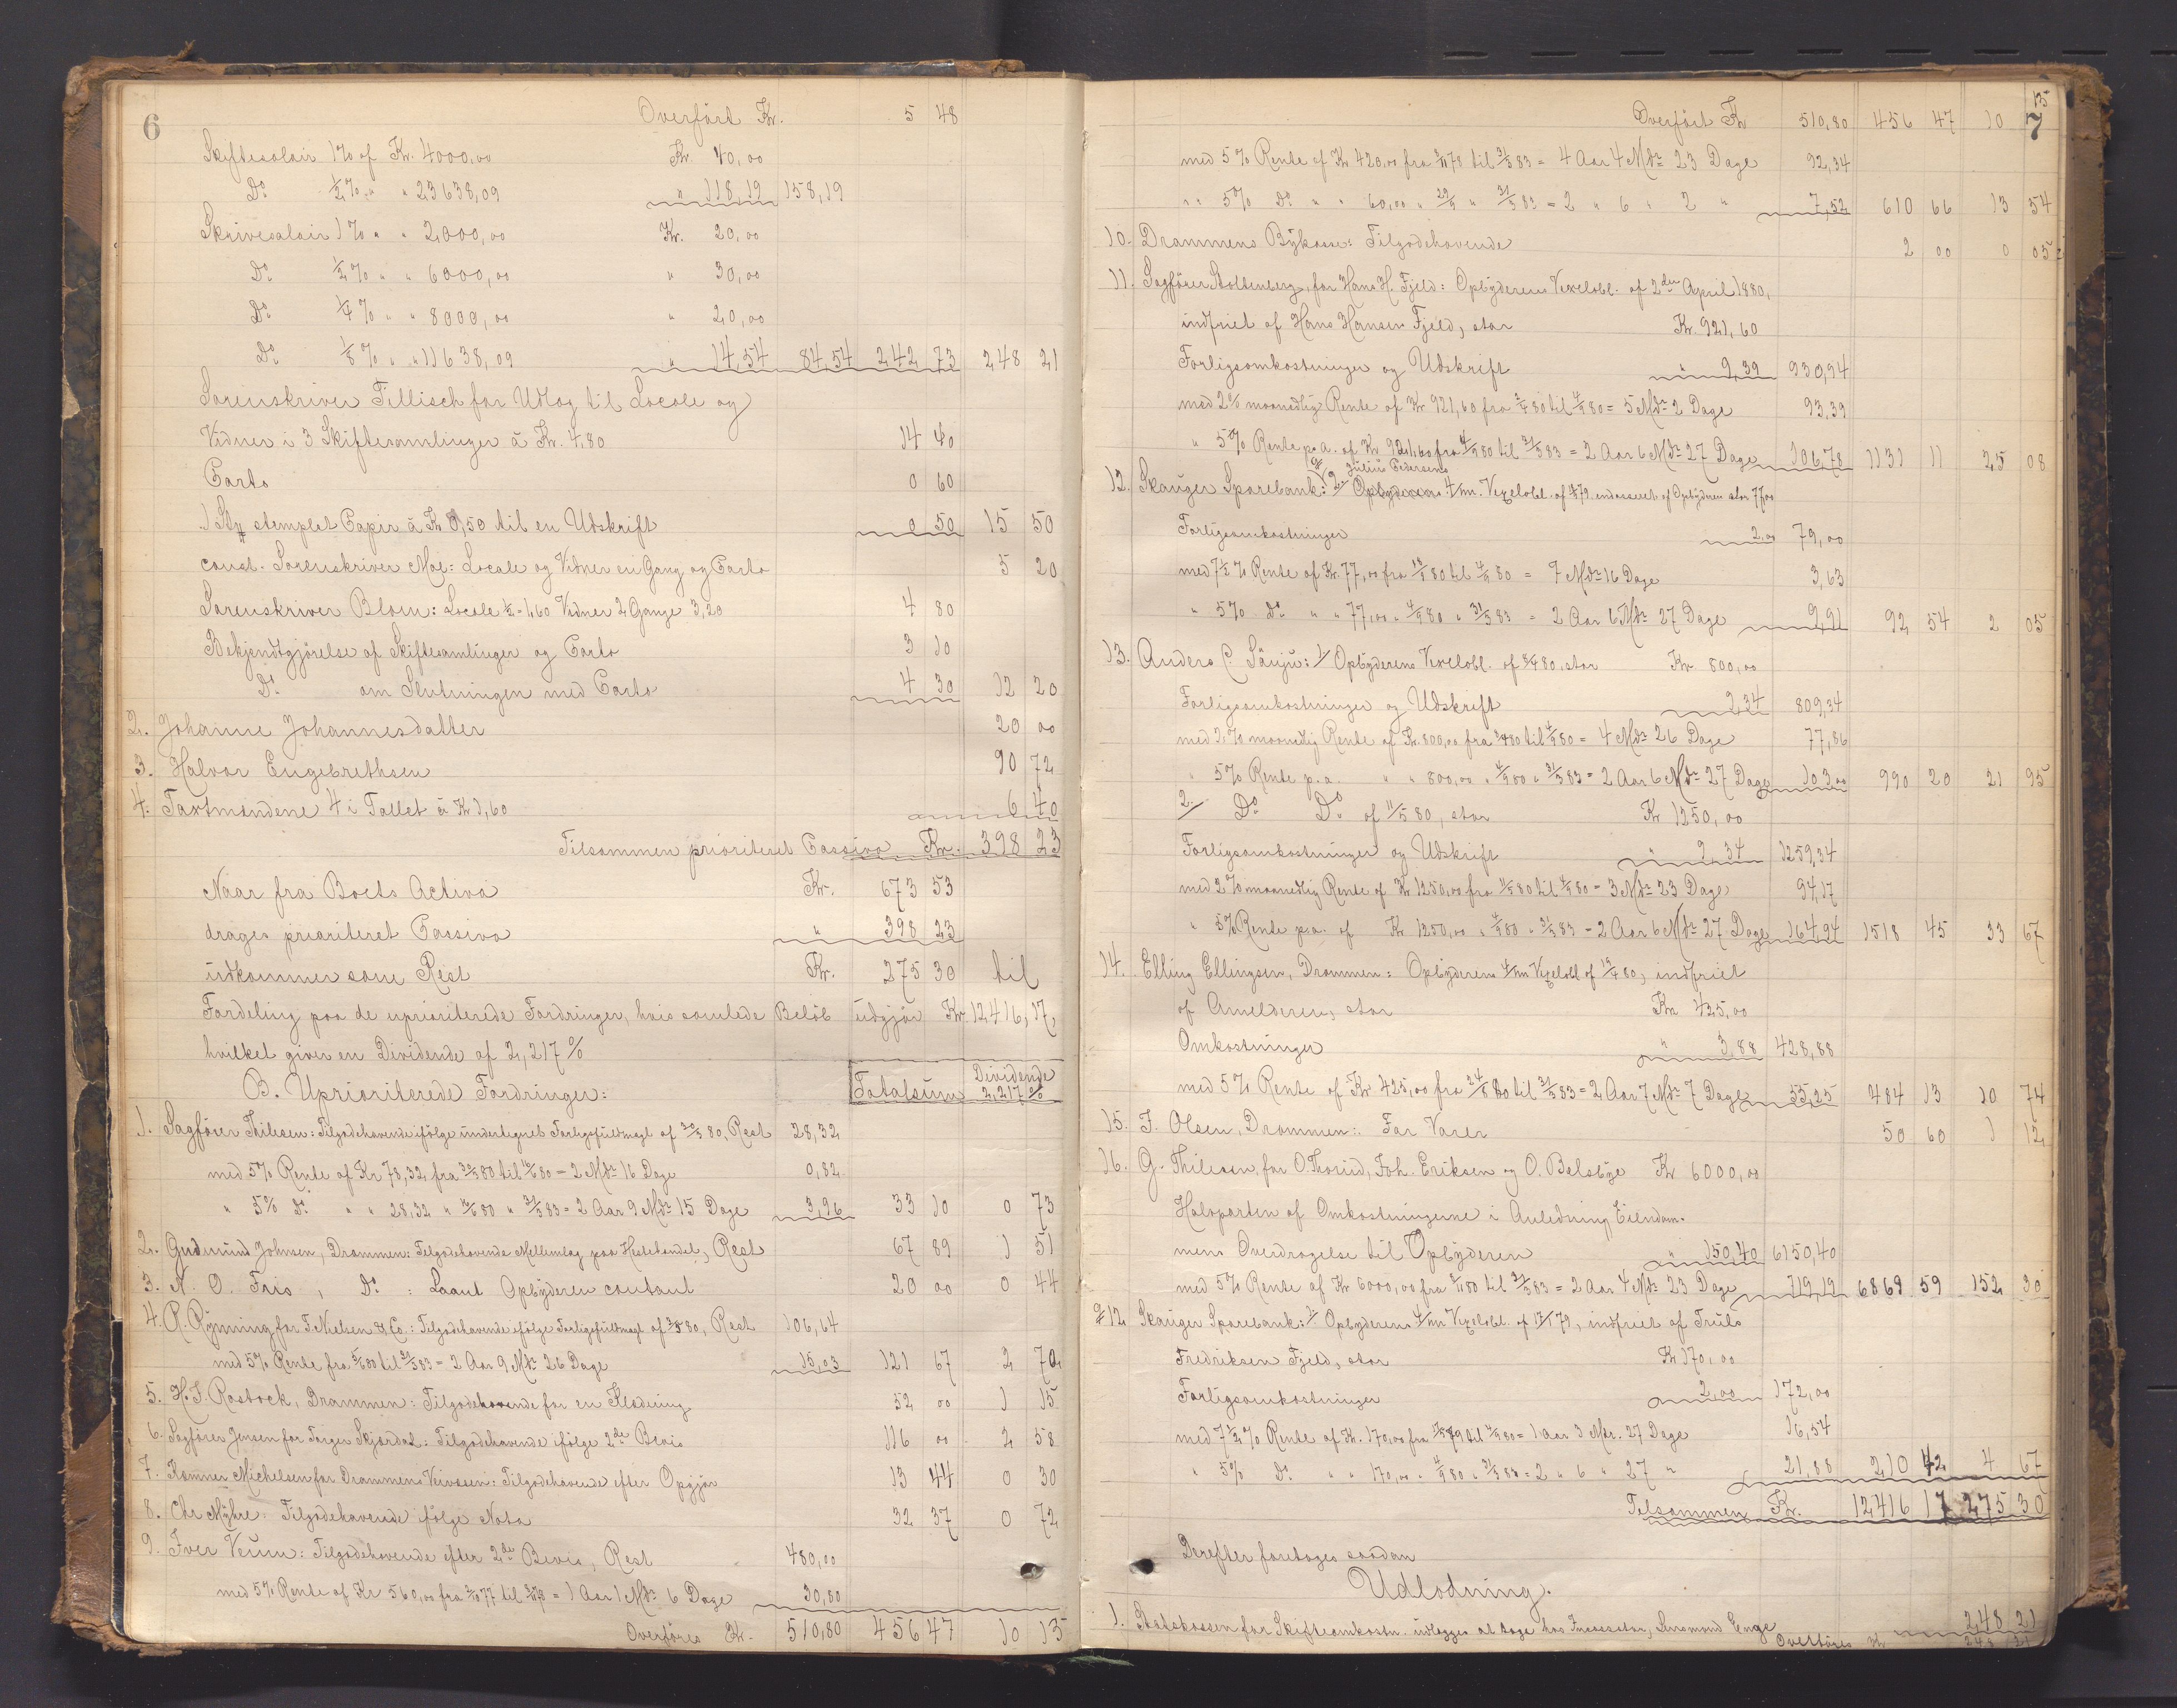 6
Overført Kr. 5 48
Skiftesalair 1% af Kr. 4000,00 Kr. 40,00
Do ½% " " 23638,09 " 118,19 158,19
Skrivesalair 1% " " 2000,00 Kr. 20,00
Do ½% " " 6000,00 " 30,00
Do ¼% " " 8000,00 " 20,00
Do ⅛% " " 11638,09 " 14,54 84,54 242 73 248 21
Sorenskriver Tillisch for Udlæg til Locale og
Vidner i 3 Skiftesamlinger á Kr. 4,80 14 40
Porto 0 60
1 Stk stemplet Papir á Kr 0,50 til en Udskrift 0 50 15 50
const. Sorenskriver Moe: Locale og Vidner en Gang og Porto 5 20
Sorenskriver Blom: Locale ½ = 1,60 Vidner 2 Gange 3,20 4 80
Bekjendtgjørelse af Skiftesamlinger og Porto 3 10
Do. om Slutningen med Porto 4 30 12 20
2. Johanne Johannesdatter 20 00
3. Halvor Engebrethsen 90 72
4. Taxtmændene 4 i Tallet á Kr 1,60 6 40
Tilsammen prioriteret Passiva Kr. 398 23
Naar fra Boets Activa Kr. 673 53
drages prioriteret Passiva " 398 23
udkommer som Rest Kr. 275 30 til
Fordeling paa de uprioriterede Fordringer, hvis samlede Beløb udgjør Kr. 12416,17,
hvilket giver en Dividende af 2,217 %
B. Uprioriterede Fordringer: Totalsum Dividende 2,217 %
1. Sagfører Thilesen: Tilgodehavende ifølge undertegnet Forligsfuldmagt af 30/3 80, Rest 28,32
med 5% Rente af Kr 78,32 fra 30/3 80 til 16/6 80 = 2 Mdr 16 Dage 0,82
" 5% Do " " 28,32 " 16/6 80 " 31/3 83 = 2 Aar 9 Mdr 15 Dage 3,96 33 10 0 73
2. Gudmund Johnsen, Drammen: Tilgodehavende Mellemlag paa Hestehandel, Rest 67 89 1 51
3. N. O. Friis, Do: Laant Opbyderen contant 20 00 0 44
4. P. Rynning for T. Nielsen & Co.: Tilgodehavende ifølge Forligsfuldmagt af 5/5 80, Rest 106,64
med 5% Rente fra 5/6 80 til 31/3 83 = 2 Aar 9 Mdr 26 Dage 15,03 121 67 2 70
5. H. J. Rostock, Drammen: Tilgodehavende for en Klædning 52 00 1 15
6. Sagfører Jensen for Torger Skjørdal: Tilgodehavende ifølge 2de Bevis 116 00 2 58
7. Kæmner Michelsen for Drammens Veivæsen: Tilgodehavende efter Opgjør 13 44 0 30
8. Chr Myhre: Tilgodehavende ifølge Nota 32 37 0 72
9. Iver Veum: Tilgodehavende efter 2de Bevis, Rest 480,00
med 5% Rente af Kr 560,00 fra 2/10 77 til 8/11 78 = 1 Aar 1 Mdr 6 Dage 30,80
Overføres Kr. 510,80 456 47 10 13
7
Overført Kr 510,80 456 47 10 13
med 5% Rente af Kr 420,00 fra 8/11 78 til 31/3 83 = 4 Aar 4 Mdr 23 Dage 92,34
" " 5% Do " " 60,00 " 29/9 " 31/3 83 = 2 " 6 " 2 " 7,52 610 66 13 54
10. Drammens Bykasse: Tilgodehavende 2 00 0 05
11. Sagfører Stoltenberg, for Hans H. Fjeld: Opbyderens Vexelobl. af 2den April 1880,
indfriet af Hans Hansen Fjeld, stor Kr. 921,60
Forligsomkostninger og Udskrift " 9,39 930,94
med 2% maanedlig Rente af Kr 921,60 fra 2/4 80 til 4/9 80 = 5 Mdr 2 Dage 93,39
" 5% Rente p. a. af Kr 921,60 fra 4/9 80 til 31/3 83 = 2 Aar 6 Mdr 27 Dage 106,78 1131 11 25 08
Juliu Pedersens
12. Skauger Sparebank: 2/ Opbyderens 4/m. Vexelobl. af 79 endosseret af Opbyderen stor 77,00
Forligsomkostninger 2,00 79,00
med 7½% Rente af Kr. 77,00 fra 18/1 80 til 4/9 80 = 7 Mdr 16 Dage 3,63
" 5% Do " " 77,00 " 4/9 80 " 31/3 83 = 2 Aar 6 Mdr 27 Dage 9,91 92 54 2 05
13. Anders P. Sønju: 1/ Opbyderens Vexelobl. af 8/4 80, stor Kr 800,00
Forligsomkostninger og Udskrift 9,34 809,34
med 2% maanedlig Rente af Kr. 800,00 fra 8/4 80 til 4/9 80 = 4 Mdr 26 Dage 77,86
" 5% Rente p. a. " " 800,00 " 4/9 80 " 31/3 83 = 2 Aar 6 Mdr 27 Dage 103,00 990 20 21 95
2/ Do Do af 11/5 80, stor Kr 1250,00
Forligsomkostninger og Udskrift " 9,34 1259,34
med 2% maanedlig Rente af Kr 1250,00 fra 11/5 80 til 4/9 80 = 3 Mdr 23 Dage 94,17
" 5% Rente p. a. af Kr 1250,00 " 4/9 80 " 31/3 83 = 2 Aar 6 Mdr 27 Dage 164,94 1518 45 33 67
14. Elling Ellingsen, Drammen: Opbyderens 4/m Vexelobl af 13/4 80, indfriet
af Anmelderen, stor Kr 425,00
Omkostninger " 3,88 428,88
med 5% Rente af Kr. 425,00 fra 24/8 80 til 31/3 83 = 2 Aar 7 Mdr 7 Dage 55,25 484 13 10 74
15. F. Olsen, Drammen: For Varer 50 60 1 12
16. G. Thilesen, for O. Thorud, Joh. Eriksen og O. Belsbye Kr 6000,00
Halvparten af Omkostningerne i Anledning Eiendom-
mens Overdragelse til Opbyderen " 150,40 6150,40
med 5% Rente af Kr 6000,00 fra 8/11 80 til 31/3 83 = 2 Aar 4 Mdr 23 Dage 719,19 6869 59 152 30
12 Skauger Sparebank: 1/ Opbyderens 4/m Vexelobl. af 17/1 79, indfriet af Truls
Fredriksen Fjeld, stor Kr 170,00
Forligsomkostninger 2,00 172,00
med 7½% Rente af Kr. 170,00 fra 79 til 4/9 80 = 1 Aar 3 Mdr. 27 Dage 16,54
" 5% Do " " 170,00 " 4/9 80 " 31/3 83 = 2 " 6 " 27 " 21,88 210 42 4 67
Tilsammen Kr. 12416 17 275 30
Derefter foretoges saadan
Udlodning.
1. Statskassen for Skifteomkostn. udlægges at tage hos Incassator, Lensmand Enge 248 21
Overføres Kr 248 21